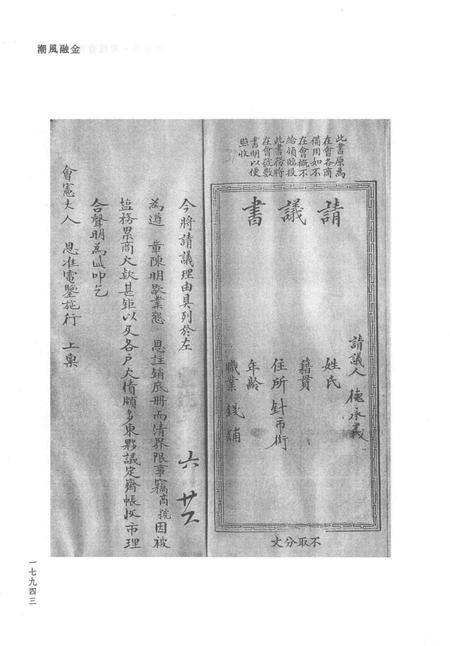 金融風潮
此書原為
在會各商
備用如不
在會概不
給領臨投
此書務將
在會號數
書明以便
照收
請議書
請議人 德永義
姓氏
籍貫
住所 針市街
年齡
職業 錢鋪
不取分文
六 廿
今將請議理由具列於左
為道 業陳明歇業懇 恩註銷底冊而清界限事竊商號因被
塩務累商欠款甚鉅以及各戶欠債頗多東夥議定齊帳收市理
合聲明為此叩乞
會憲大人 恩准電鑒施行 上稟
一七九四三